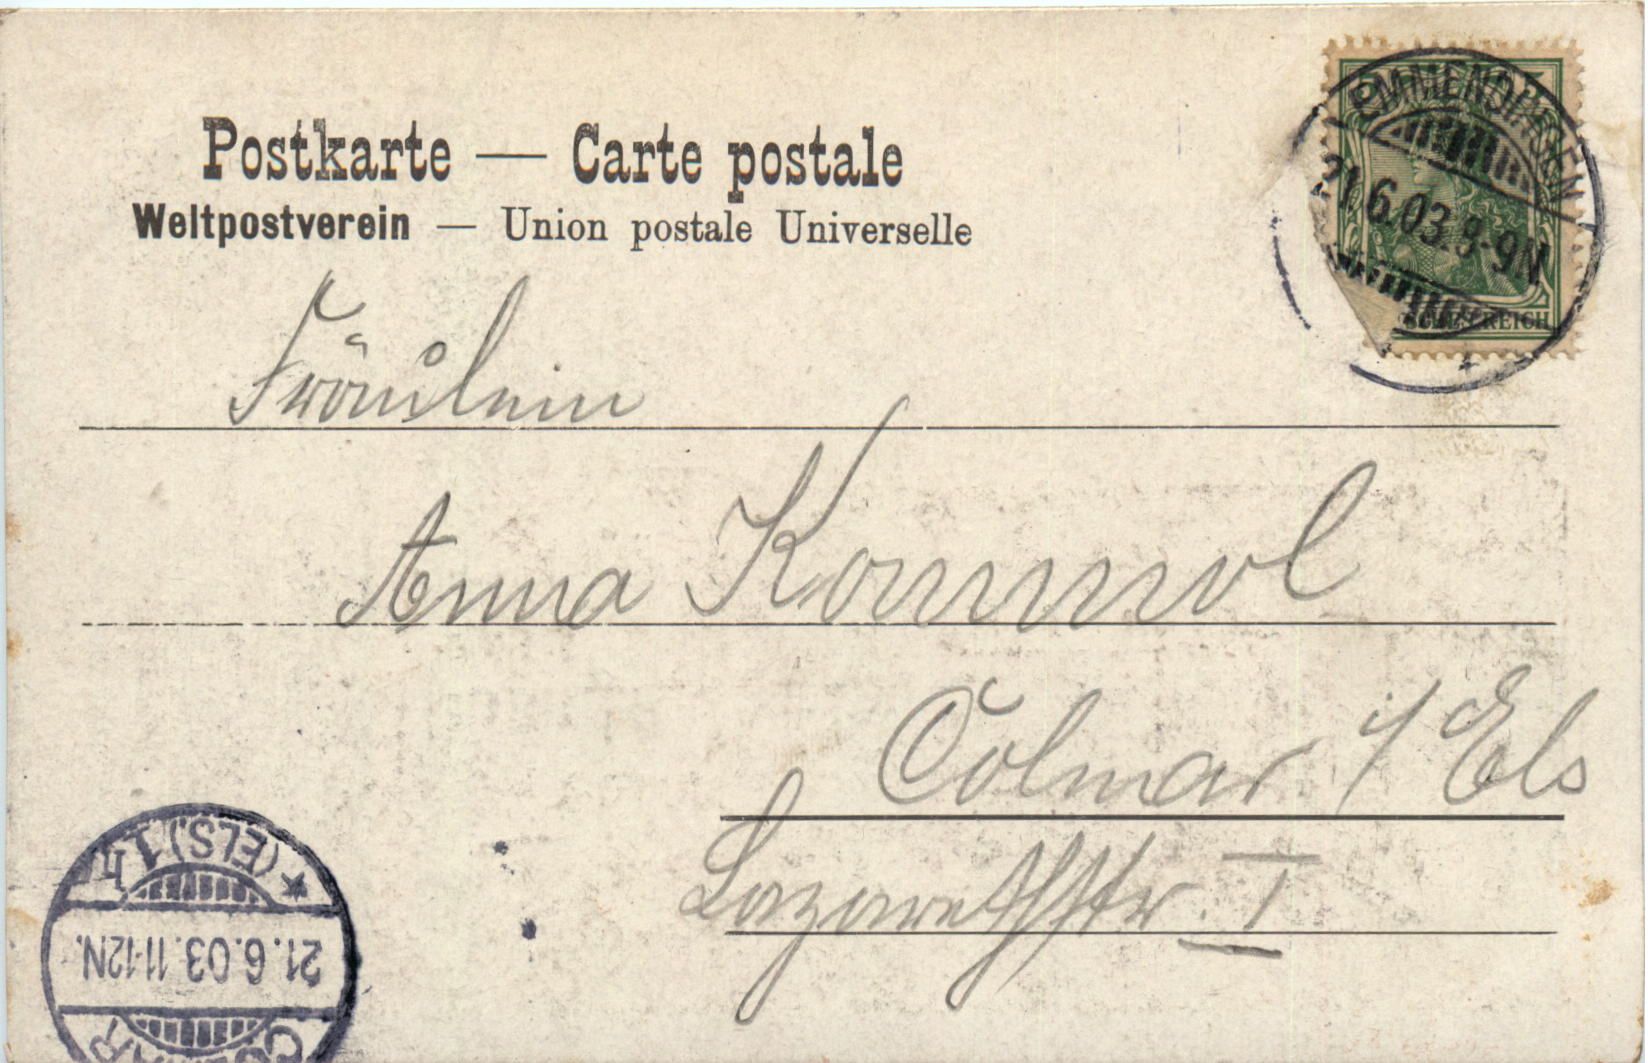 Postkarte — Carte postale
Weltpostverein — Union postale Universelle
EMMENDINGEN
21.6.03.8-9N
REICH
Fräulein
Anna
Colmar i/Els
Lazarethstr. I
COLMAR
(ELS.) 1 h
21.6.03.11-12N.